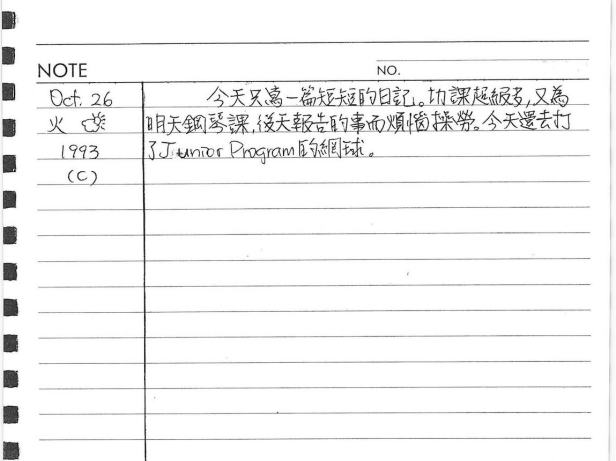 NOTE
NO.
Oct. 26
火
1993
(C)
今天只寫一篇短短的日記。功課超級多,又為
明天鋼琴課,後天報告的事而煩惱操勞。今天還去打
了Junior Program的網球。